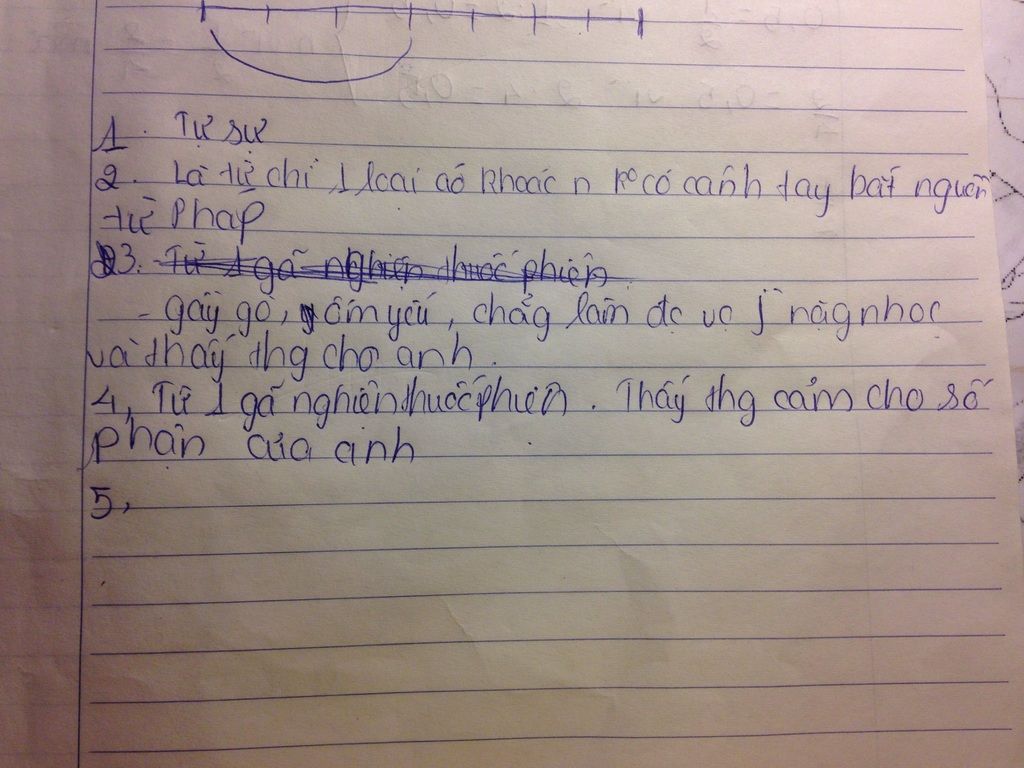 1. Tự sự
2. Là từ chỉ 1 loại áo khoác n k° có cánh tay bắt nguồn
từ Pháp
3. Từ 1 gã nghiện thuốc phiện
- gầy gò, ốm yếu, chẳg làm đc vc j nặg nhọc
và thấy thg cho anh.
4, Từ 1 gã nghiện thuốc phiện. Thấy thg cảm cho số
phận của anh
5,